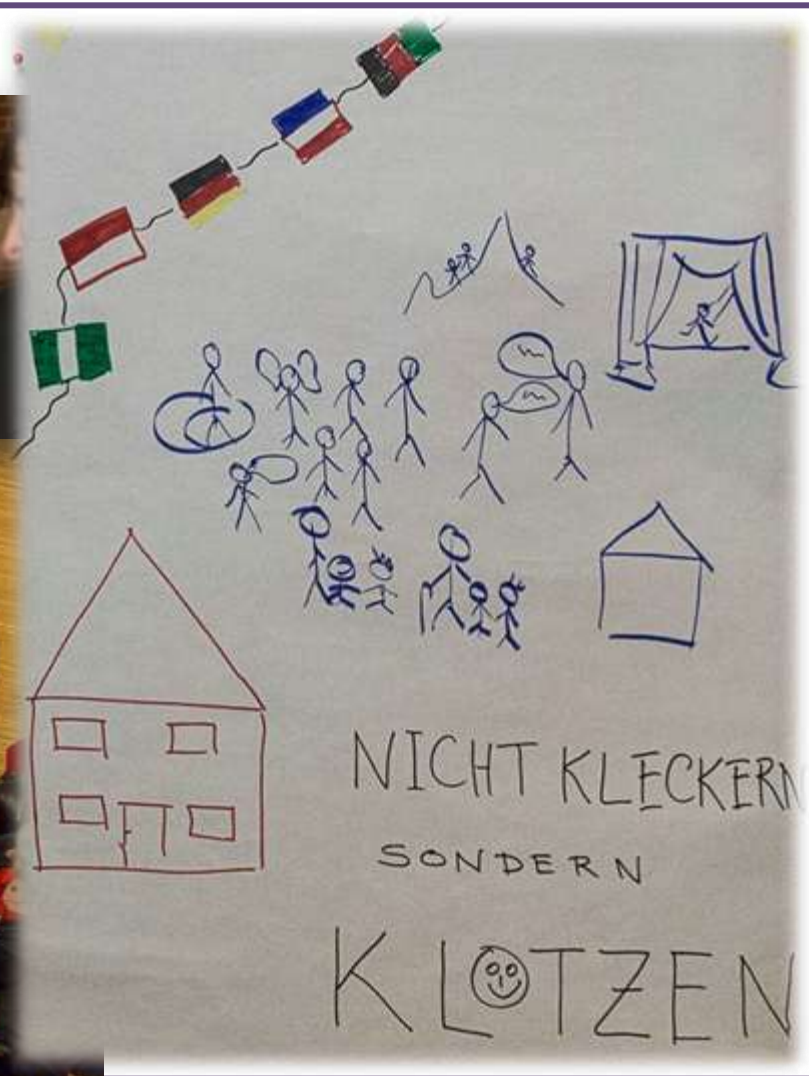 NICHT KLECKERN
SONDERN
KLOTZEN